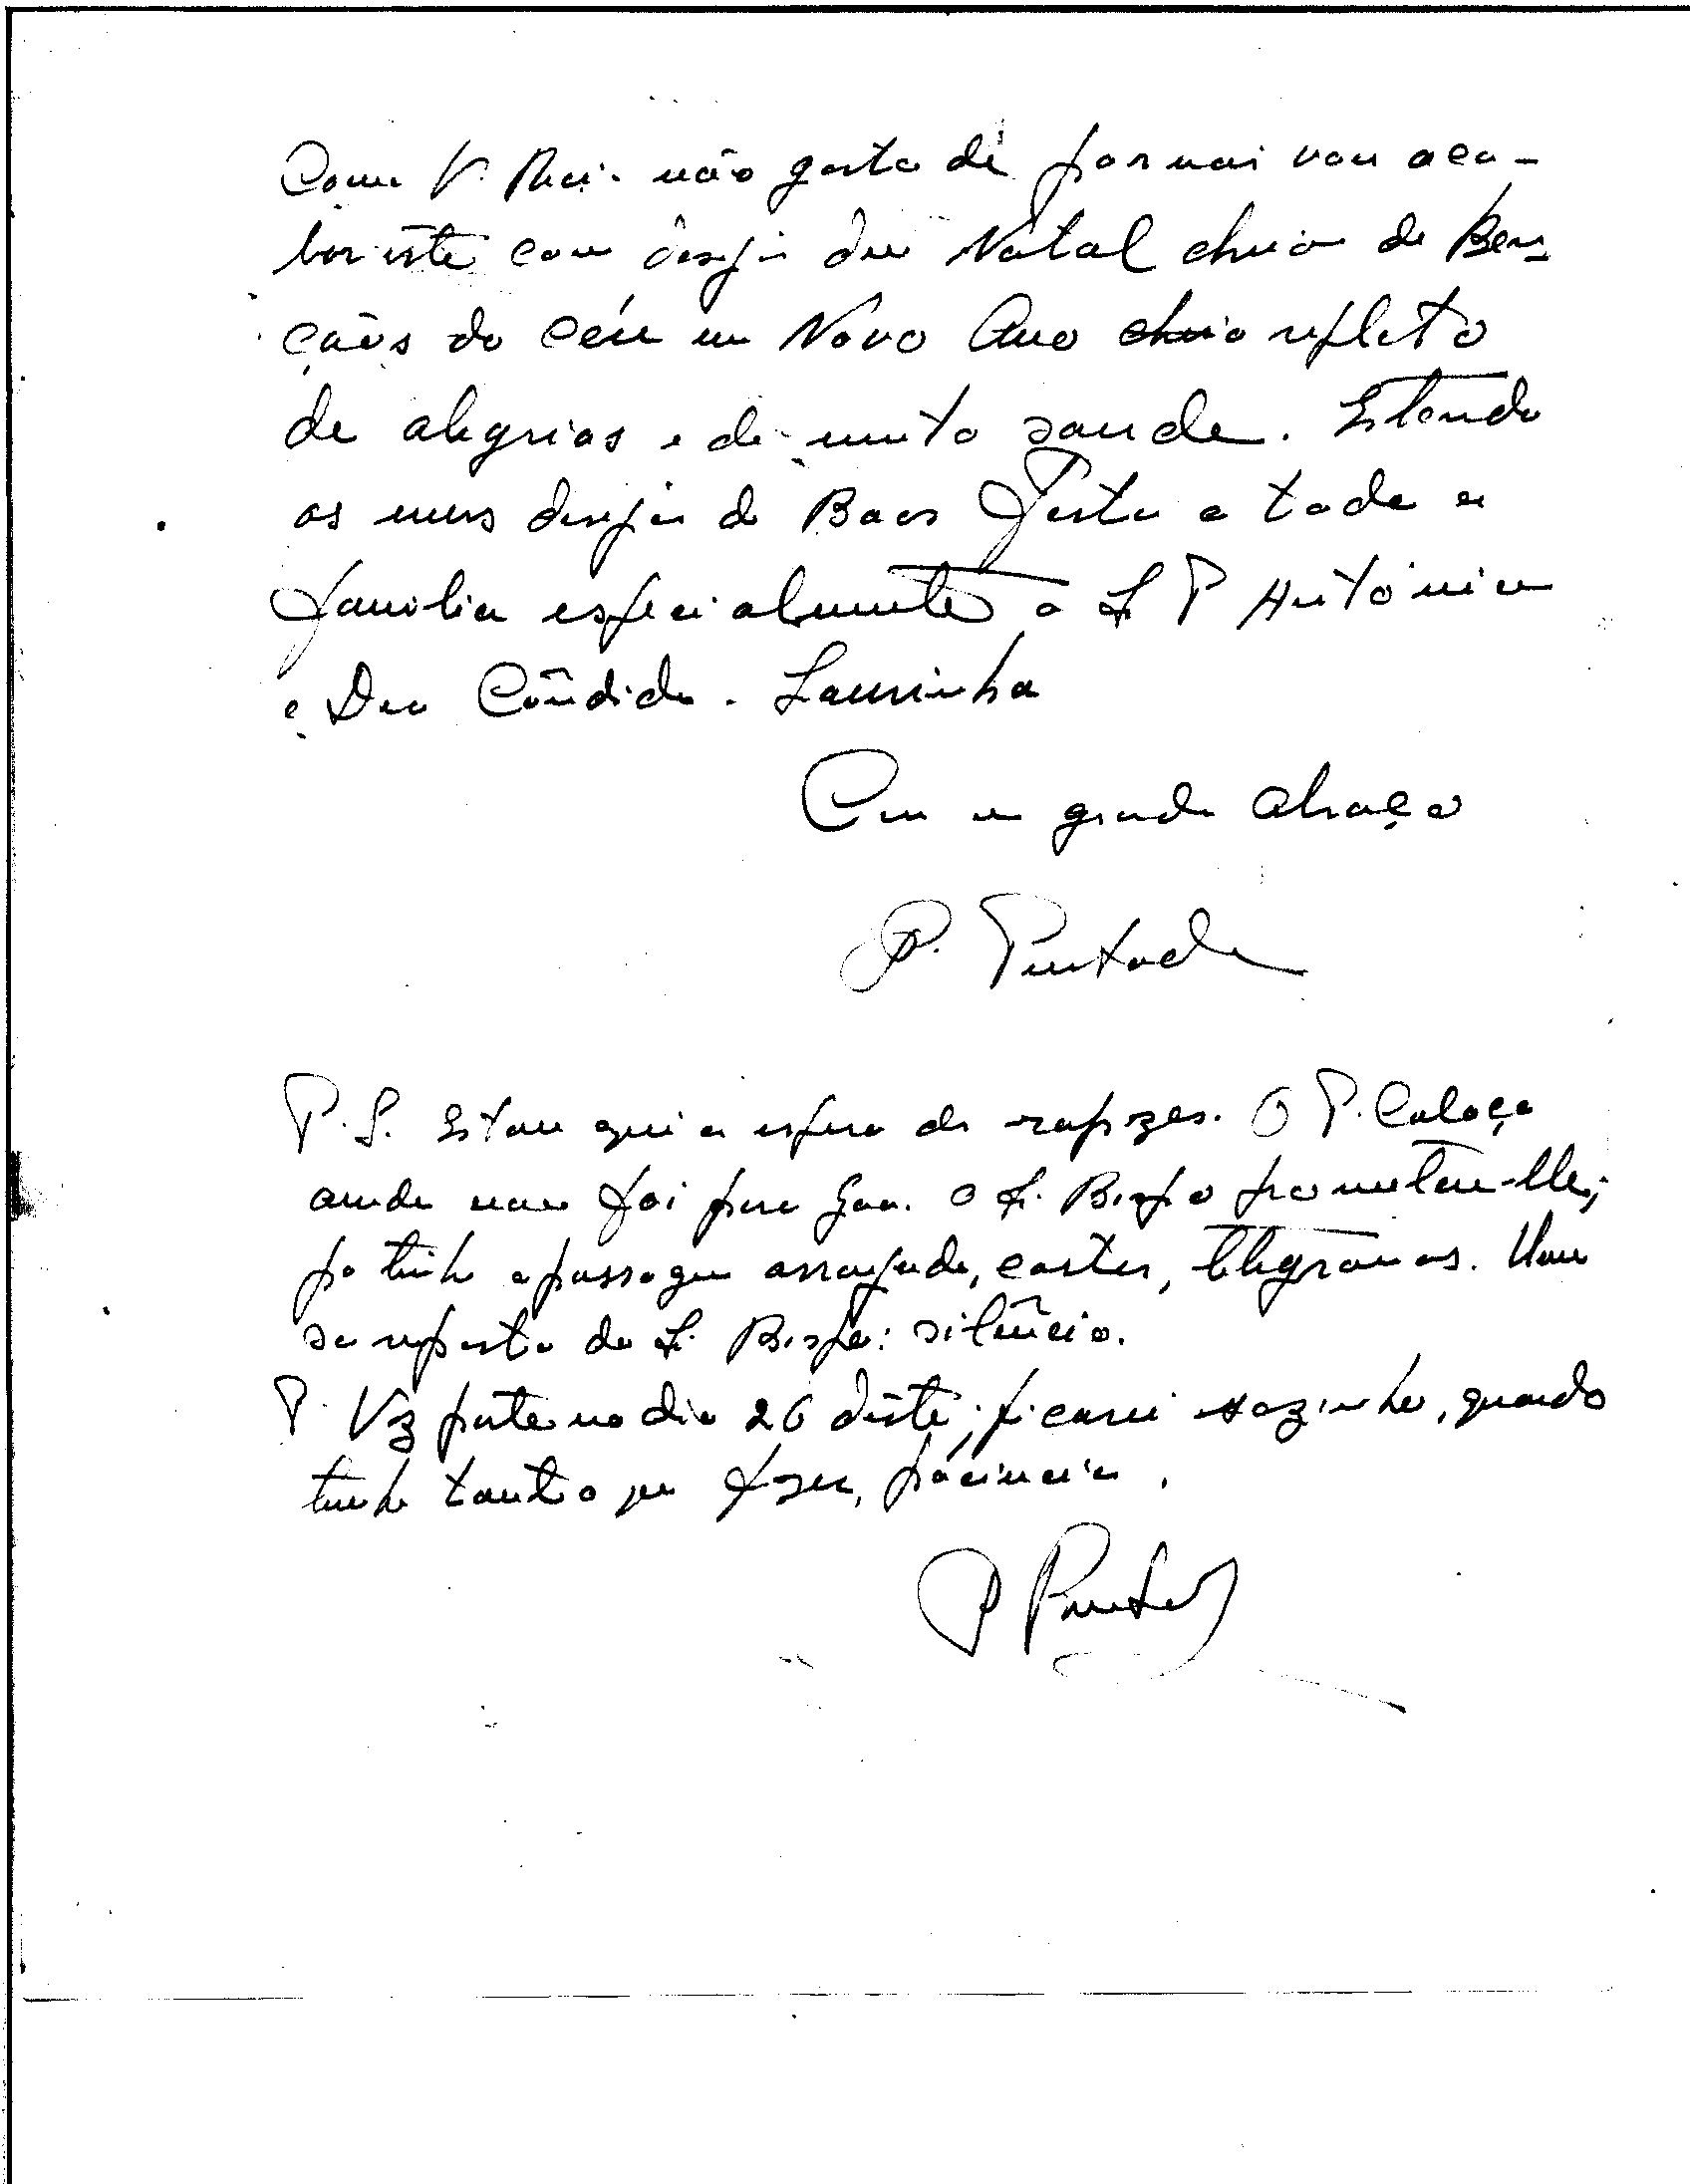 Como V. Rcia. não gosta de jornais vou aca-
bar êste com desejos dum Natal cheio de Ben-
çãos do Céu um Novo Ano cheio repleto
de alegrias e de muita saude. Estendo
os meus desejos de Boas Festas a toda a
familia especialmente o S. P António
e Dea Cândida. Laurinha
Com um grande abraço
P.
P.S. Estou aqui a espera de rapazes. O P. Colaço
ainda não foi para Goa. O S. Bispo prometeu-lhe;
ja tinha a passagem arranjada, cartas, telegramas. Uma
só resposta do S. Bispo: silêncio.
P. Vaz parte no dia 26 dêste; ficarei sozinho, quando
tenho tanto que fazer, páciencia.
P